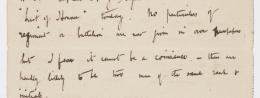 "List of Honour" today. No particulars of
regiment or battalion are now given in our newspapers
but I fear it cannot be a coincidence - there are
hardly likely to be two men of the same rank &
initials.